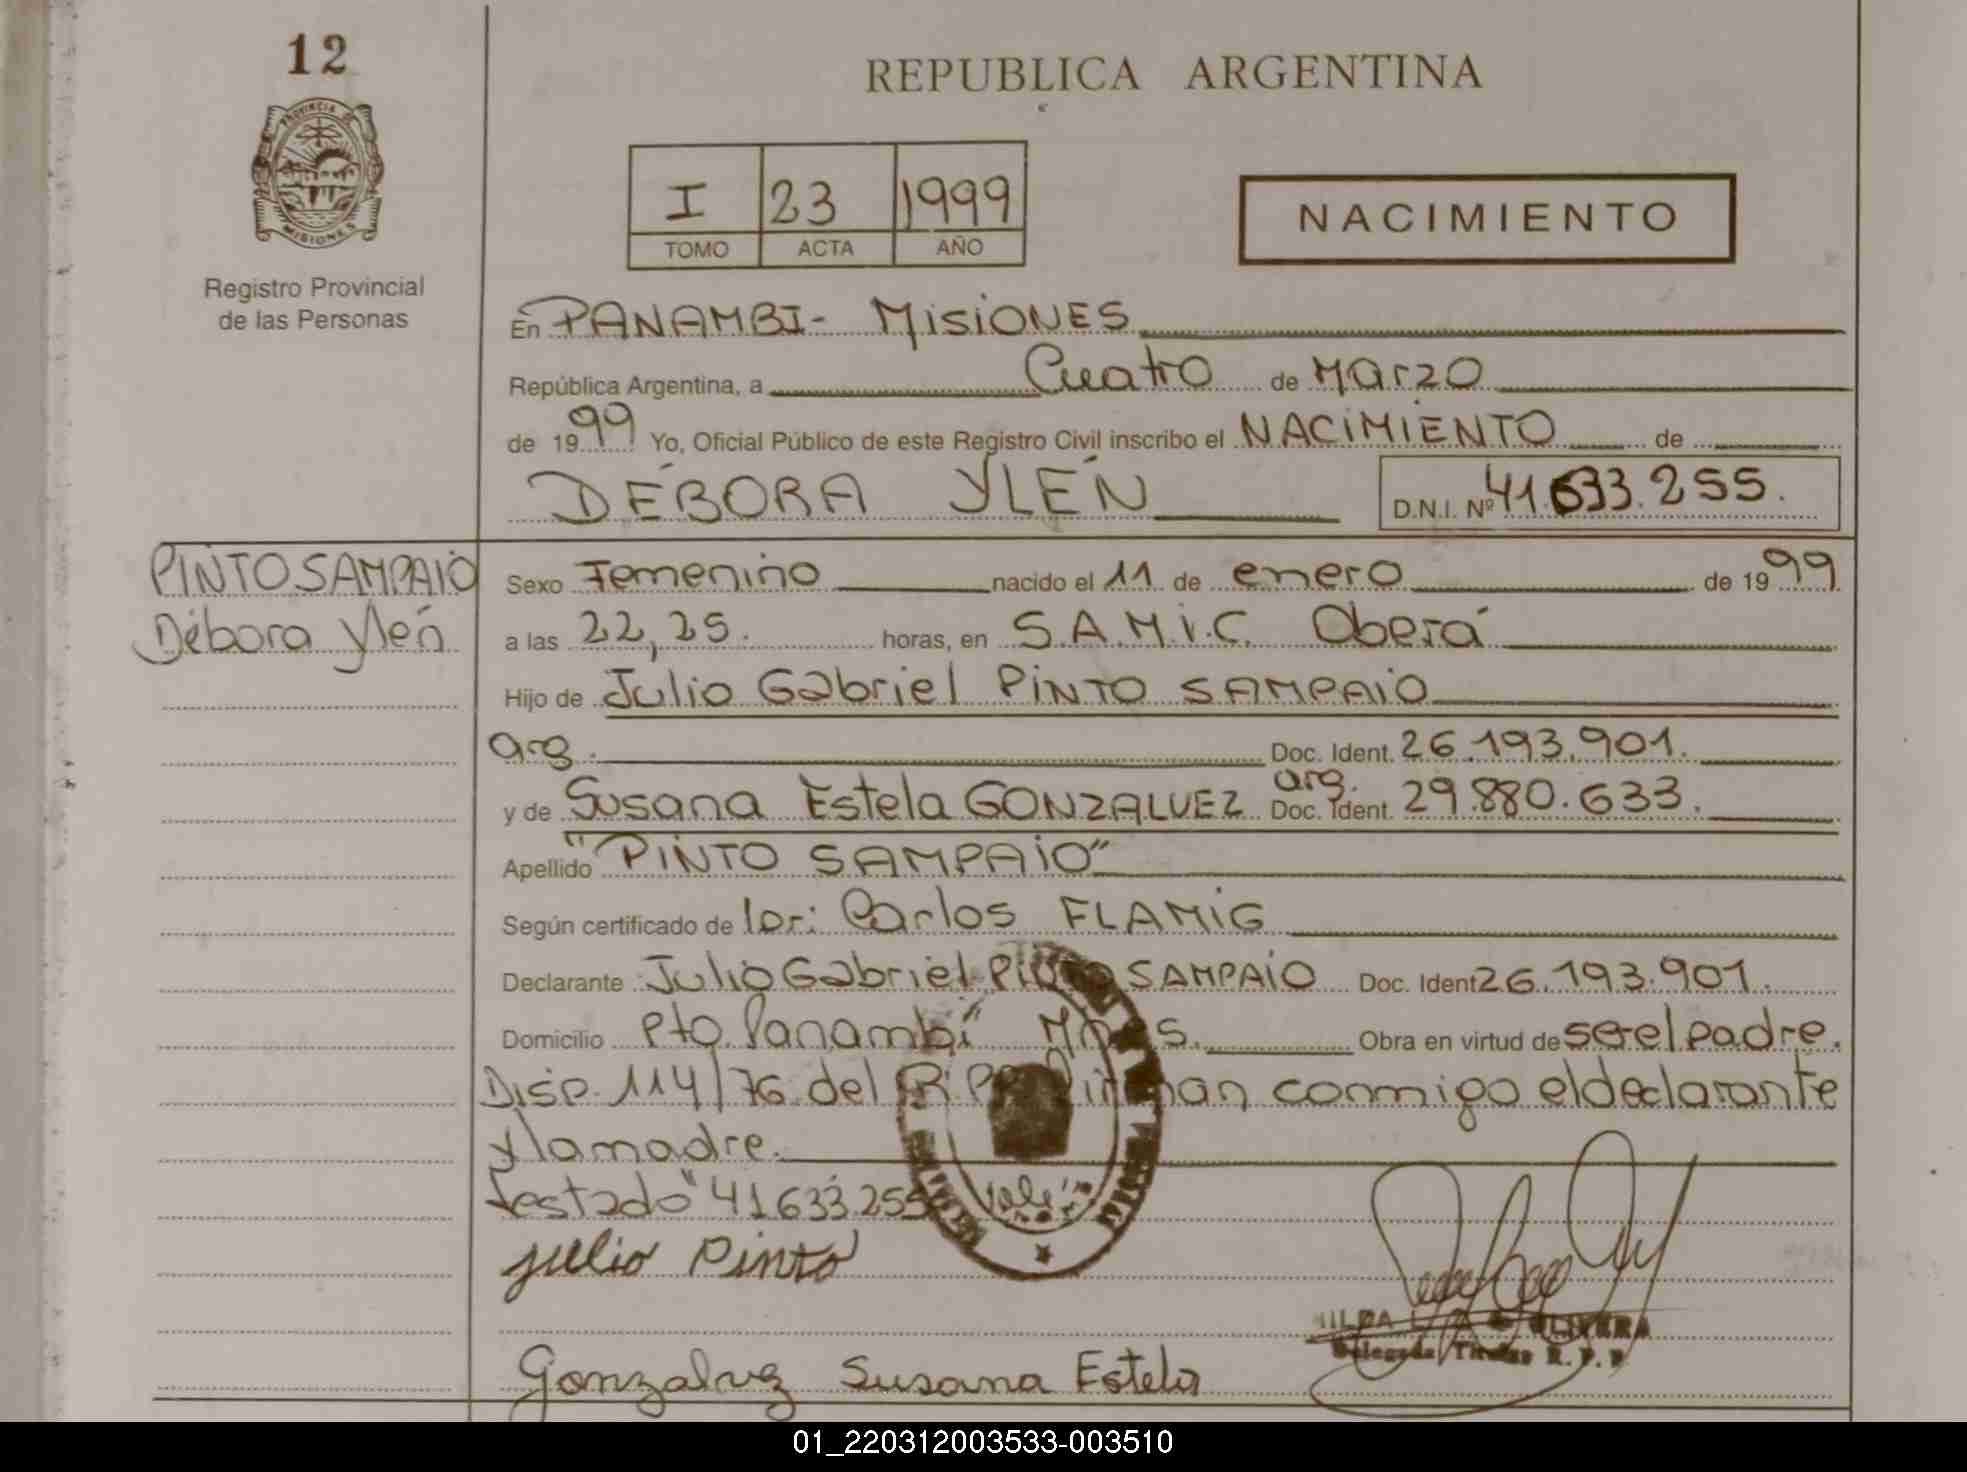 12
REPUBLICA ARGENTINA
PROVINCIA DE
MISIONES
Registro Provincial
de las Personas
I 23 1999
TOMO ACTA AÑO
NACIMIENTO
En PANAMBI- MISIONES
República Argentina, a Cuatro de Marzo
de 1999 Yo, Oficial Público de este Registro Civil inscribo el NACIMIENTO de
DÉBORA YLÉN
D.N.I. Nº 41.633.255.
PINTO SAMPAIO
Débora Ylén
Sexo Femenino nacido el 11 de enero de 1999
a las 22,25. horas, en S.A.M.i.C. Oberá
Hijo de Julio Gabriel PINTO SAMPAIO
arg. Doc. Ident. 26.193.901.
y de Susana Estela GONZALVEZ arg. Doc. Ident. 29.880.633.
Apellido "PINTO SAMPAIO"
Según certificado de Dr: Carlos FLAMIG
Declarante Julio Gabriel PINTO SAMPAIO Doc. Ident 26.193.901.
Domicilio Pto. Panambí Mnes. Obra en virtud de ser el padre.
Disp. 114/76 del R.P.P. firman conmigo el declarante
y la madre.
Testado "41633.255
Julio Pinto
Delegada Titular R.P.P.
Gonzalvez Susana Estela
01_220312003533-003510